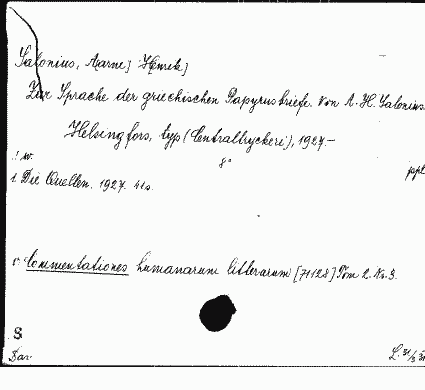 Salonius, Aarne] Henrik]
Zur Sprache der griechischen Papyrusbriefe. Von A. H. Salonius.
Helsingfors, typ (Centraltryckeri), 1927.-
8°
! w. ppl
1. Die Quellen. 1927. 41s.
v. Commentationes humanarum litterarum [71128] Tom 2. Nr. 3.
S
Dar L. 31/3